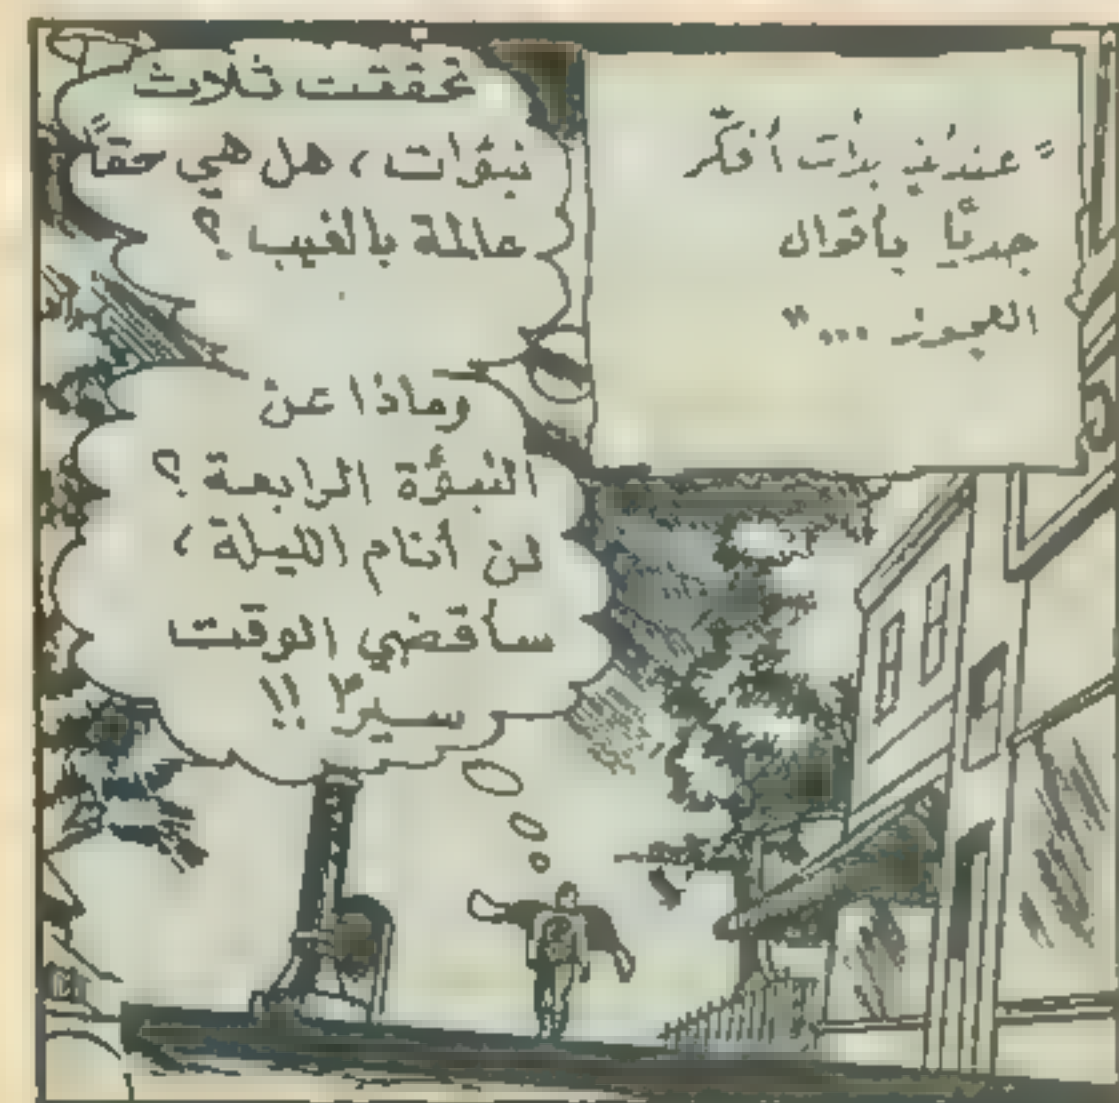 "عندئذٍ بدأت أفكّر
جديّاً بأقوال
العجوز ..."
تحققت ثلاث
نبؤات ، هل هي حقاً
عالمة بالغيب ؟
وماذا عن
النبؤة الرابعة ؟
لن أنام الليلة ،
سأقضي الوقت
سيراً !!